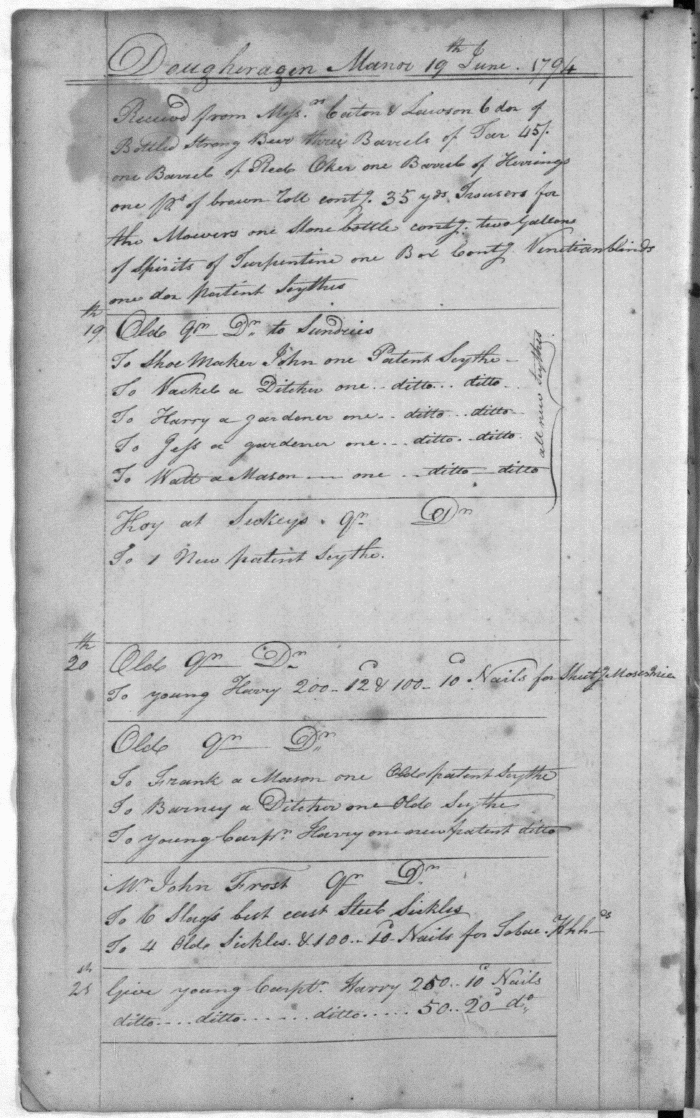 Dougheragen Manor 19th June. 1794
Receivd from Messrs. Caton & Lawson 6 doz of
Bottled Strong Beer three Barrels of Tar 45/.
one Barrel of Red Oker one Barrel of Herrings
one ps of brown Roll contg. 35 yds. Trousers for
the Mowers one Stone bottle contg. two Gallons
of Spirits of Turpentine one Box Contg Venetian blinds
one doz patent Scythes
19th Old Qr Dr to Sundries
To Shoe Maker John one Patent Scythe
To Nackel a Ditcher one .. ditto .. ditto
To Harry a gardener one .. ditto .. ditto
To Jess a gardener one ... ditto .. ditto
To Watt a Mason — one .. ditto ditto
all new Scythes
Hoy at Sukeys. Qr Dr
To 1 New patent Scythe.
20th Old Qr Dr
To young Harry 200 - 12d & 100 - 10d Nails for
Old Qr Dr
To Frank a Mason one Old patent Scythe
To Barney a Ditcher one Old Scythe
To young Carpr. Harry one new patent ditto
Mr John Frost Qr Dr
To 6 Slags best cast Steel Sickles
To 4 Old Sickles. & 100.. 10d Nails for Tobac. Hhds
Give young Carptr. Harry 250.. 10d Nails
ditto .... ditto ...... ditto ..... 50.. 20d do,